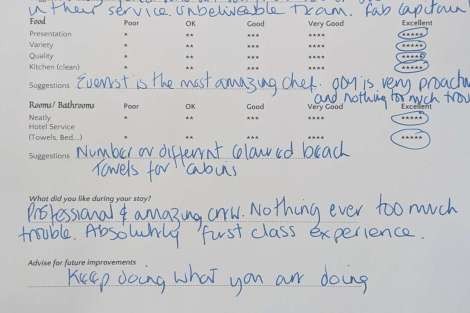 in their service. Unbelievable team. Fab Captain
Food Poor OK Good Very Good Excellent
Presentation * ** *** **** *****
Variety * ** *** **** *****
Quality * ** *** **** *****
Kitchen (clean) * ** *** **** *****
Suggestions Everest is the most amazing chef. ODM is very proactive
and nothing too much trou
Rooms/ Bathrooms Poor OK Good Very Good Excellent
Neatly * ** *** **** *****
Hotel Service
(Towels, Bed...) * ** *** **** *****
Suggestions Number or different coloured beach
towels for cabins
What did you like during your stay?
Professional & amazing crew. Nothing ever too much
trouble. Absolutely first class experience.
Advise for future improvements
Keep doing what you are doing